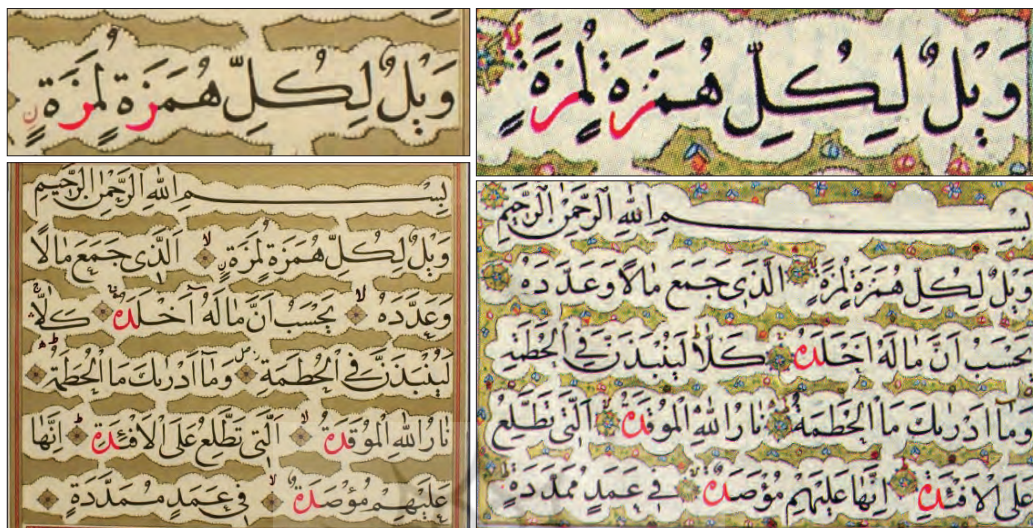 وَيْلٌ لِكُلِّ هُمَزَةٍ لُمَزَةٍ
بِسْمِ اللهِ الرَّحْمٰنِ الرَّحِيمِ
وَيْلٌ لِكُلِّ هُمَزَةٍ لُمَزَةٍ اَلَّذِى جَمَعَ مَالًا وَعَدَّدَهُ
يَحْسَبُ اَنَّ مَالَهُ اَخْلَدَهُ كَلَّا لَيُنْبَذَنَّ فِى الْحُطَمَةِ
وَمَا اَدْرٰيكَ مَا الْحُطَمَةُ نَارُ اللهِ الْمُوقَدَةُ اَلَّتِى تَطَّلِعُ
عَلَى الْاَفْئِدَةِ اِنَّهَا عَلَيْهِمْ مُؤْصَدَةٌ فِى عَمَدٍ مُمَدَّدَةٍ
وَيْلٌ لِكُلِّ هُمَزَةٍ لُمَزَةٍ ن
بِسْمِ اللهِ الرَّحْمٰنِ الرَّحِيمِ
وَيْلٌ لِكُلِّ هُمَزَةٍ لُمَزَةٍ ن لا اَلَّذِى جَمَعَ مَالًا
وَعَدَّدَهُ لا يَحْسَبُ اَنَّ مَالَهُ اَخْلَدَهُ كَلَّا
لَيُنْبَذَنَّ فِى الْحُطَمَةِ وَمَا اَدْرٰيكَ مَا الْحُطَمَةُ ط
نَارُ اللهِ الْمُوقَدَةُ لا اَلَّتِى تَطَّلِعُ عَلَى الْاَفْئِدَةِ ط اِنَّهَا
عَلَيْهِمْ مُؤْصَدَةٌ لا فِى عَمَدٍ مُمَدَّدَةٍ